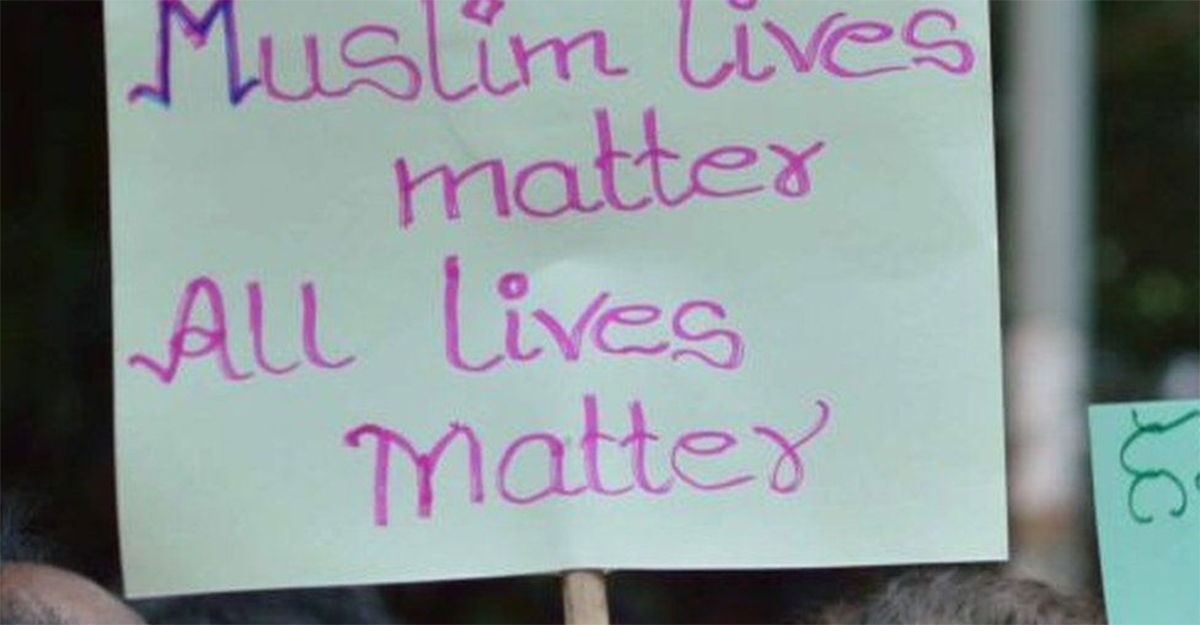 Muslim lives
matter
All lives
Matter